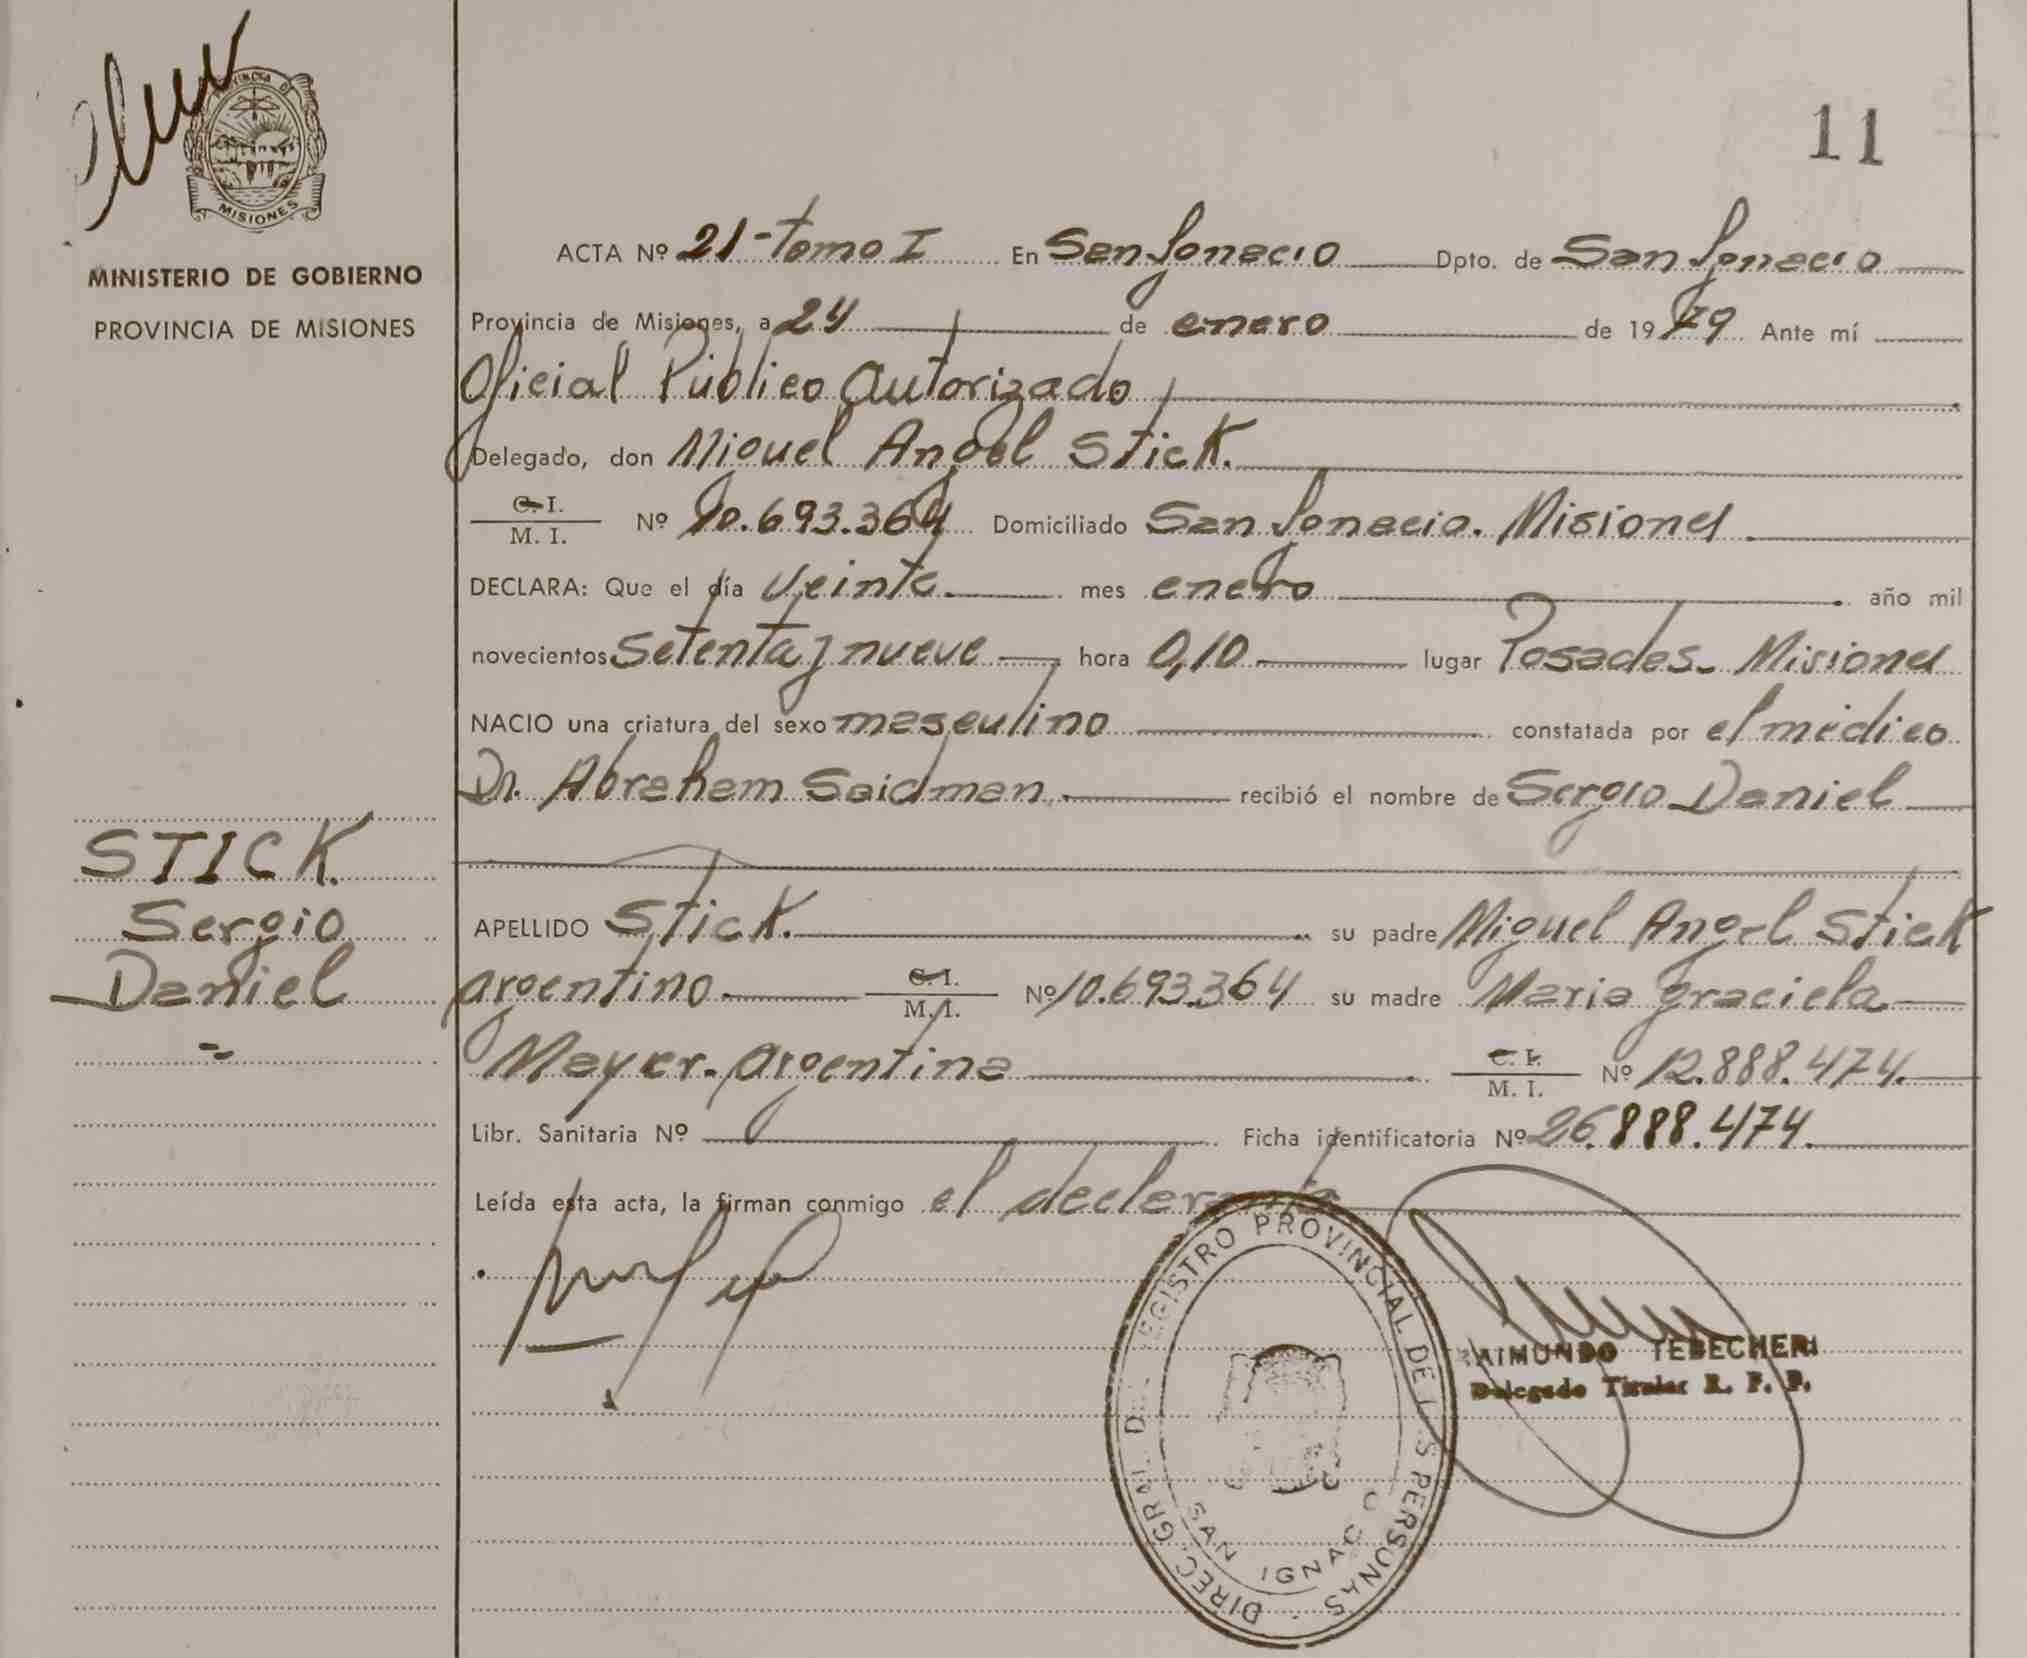 PROVINCIA DE
MISIONES
MINISTERIO DE GOBIERNO
PROVINCIA DE MISIONES
11
ACTA Nº 21-tomo I En San Ignacio Dpto. de San Ignacio
Provincia de Misiones, a 24 de enero de 1979 Ante mí
Oficial Público autorizado
Delegado, don Miguel Angel Stick.
C. I.
M. I. Nº 10.693.364 Domiciliado San Ignacio. Misiones
DECLARA: Que el día veinte mes enero año mil
novecientos setenta y nueve hora 0,10 lugar Posadas. Misiones
NACIO una criatura del sexo masculino constatada por el médico
Dr. Abraham Saidman recibió el nombre de Sergio Daniel
STICK
Sergio
Daniel
APELLIDO Stick. su padre Miguel Angel Stick
argentino C. I.
M. I. Nº 10.693.364 su madre Maria graciela
Mayer. argentina C. I.
M. I. Nº 12.888.474.
Libr. Sanitaria Nº Ficha identificatoria Nº 26.888.474.
Leída esta acta, la firman conmigo el declarante
DIREC. GRAL. DEL REGISTRO PROVINCIAL DE LAS PERSONAS
SAN IGNACIO
RAIMUNDO TEBECHERI
Delegado Titular R. P. P.